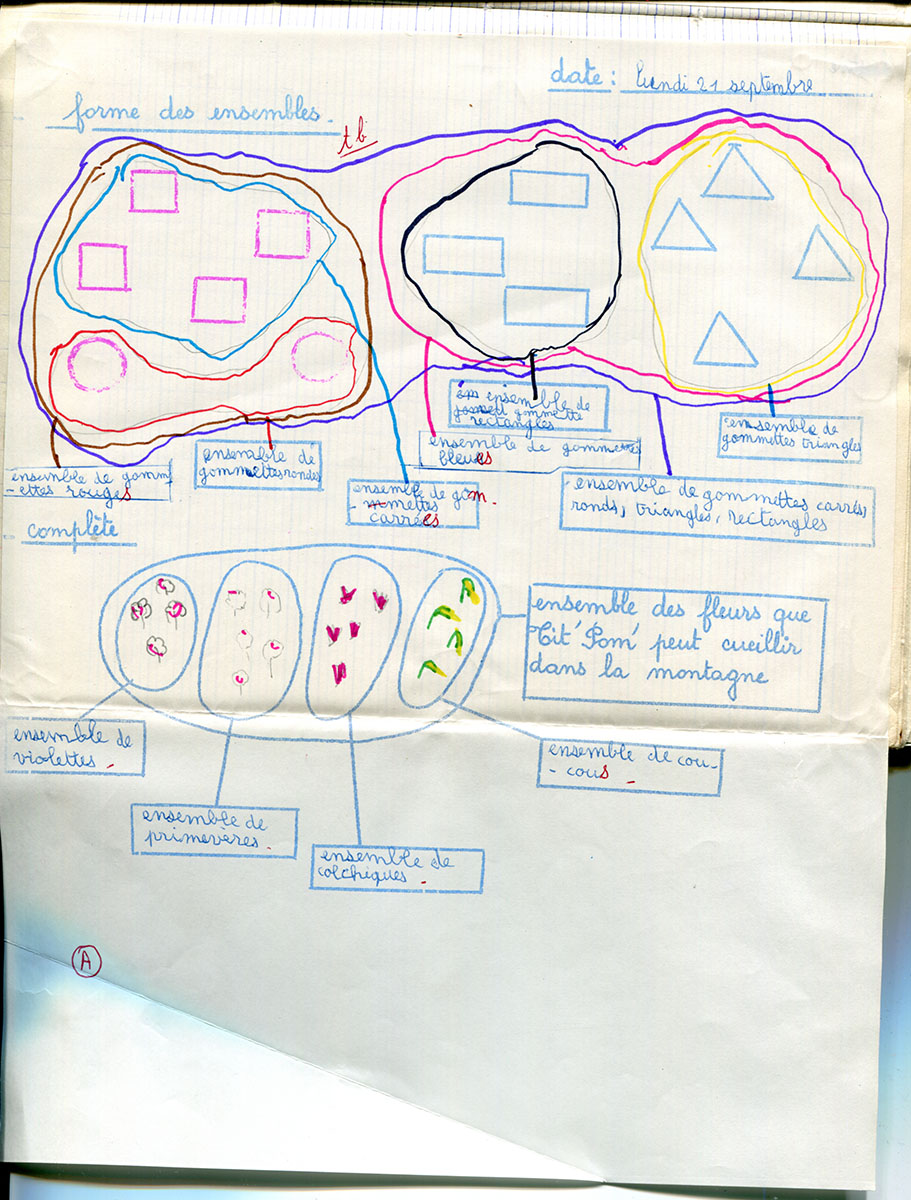 date : lundi 21 septembre
forme des ensembles.
tb
ensemble de
gommette
rectangles
ensemble de gommettes
bleues
ensemble de
gommettes triangles
ensemble de
gommettes rondes
ensemble de gomm
-ettes rouges
ensemble de gom-
mettes
carrées
ensemble de gommettes carrés,
ronds, triangles, rectangles
complète
ensemble des fleurs que
'Tit'Pom' peut cueillir
dans la montagne
ensemble de
violettes.
ensemble de cou-
-cous.
ensemble de
primevères.
ensemble de
colchiques.
A